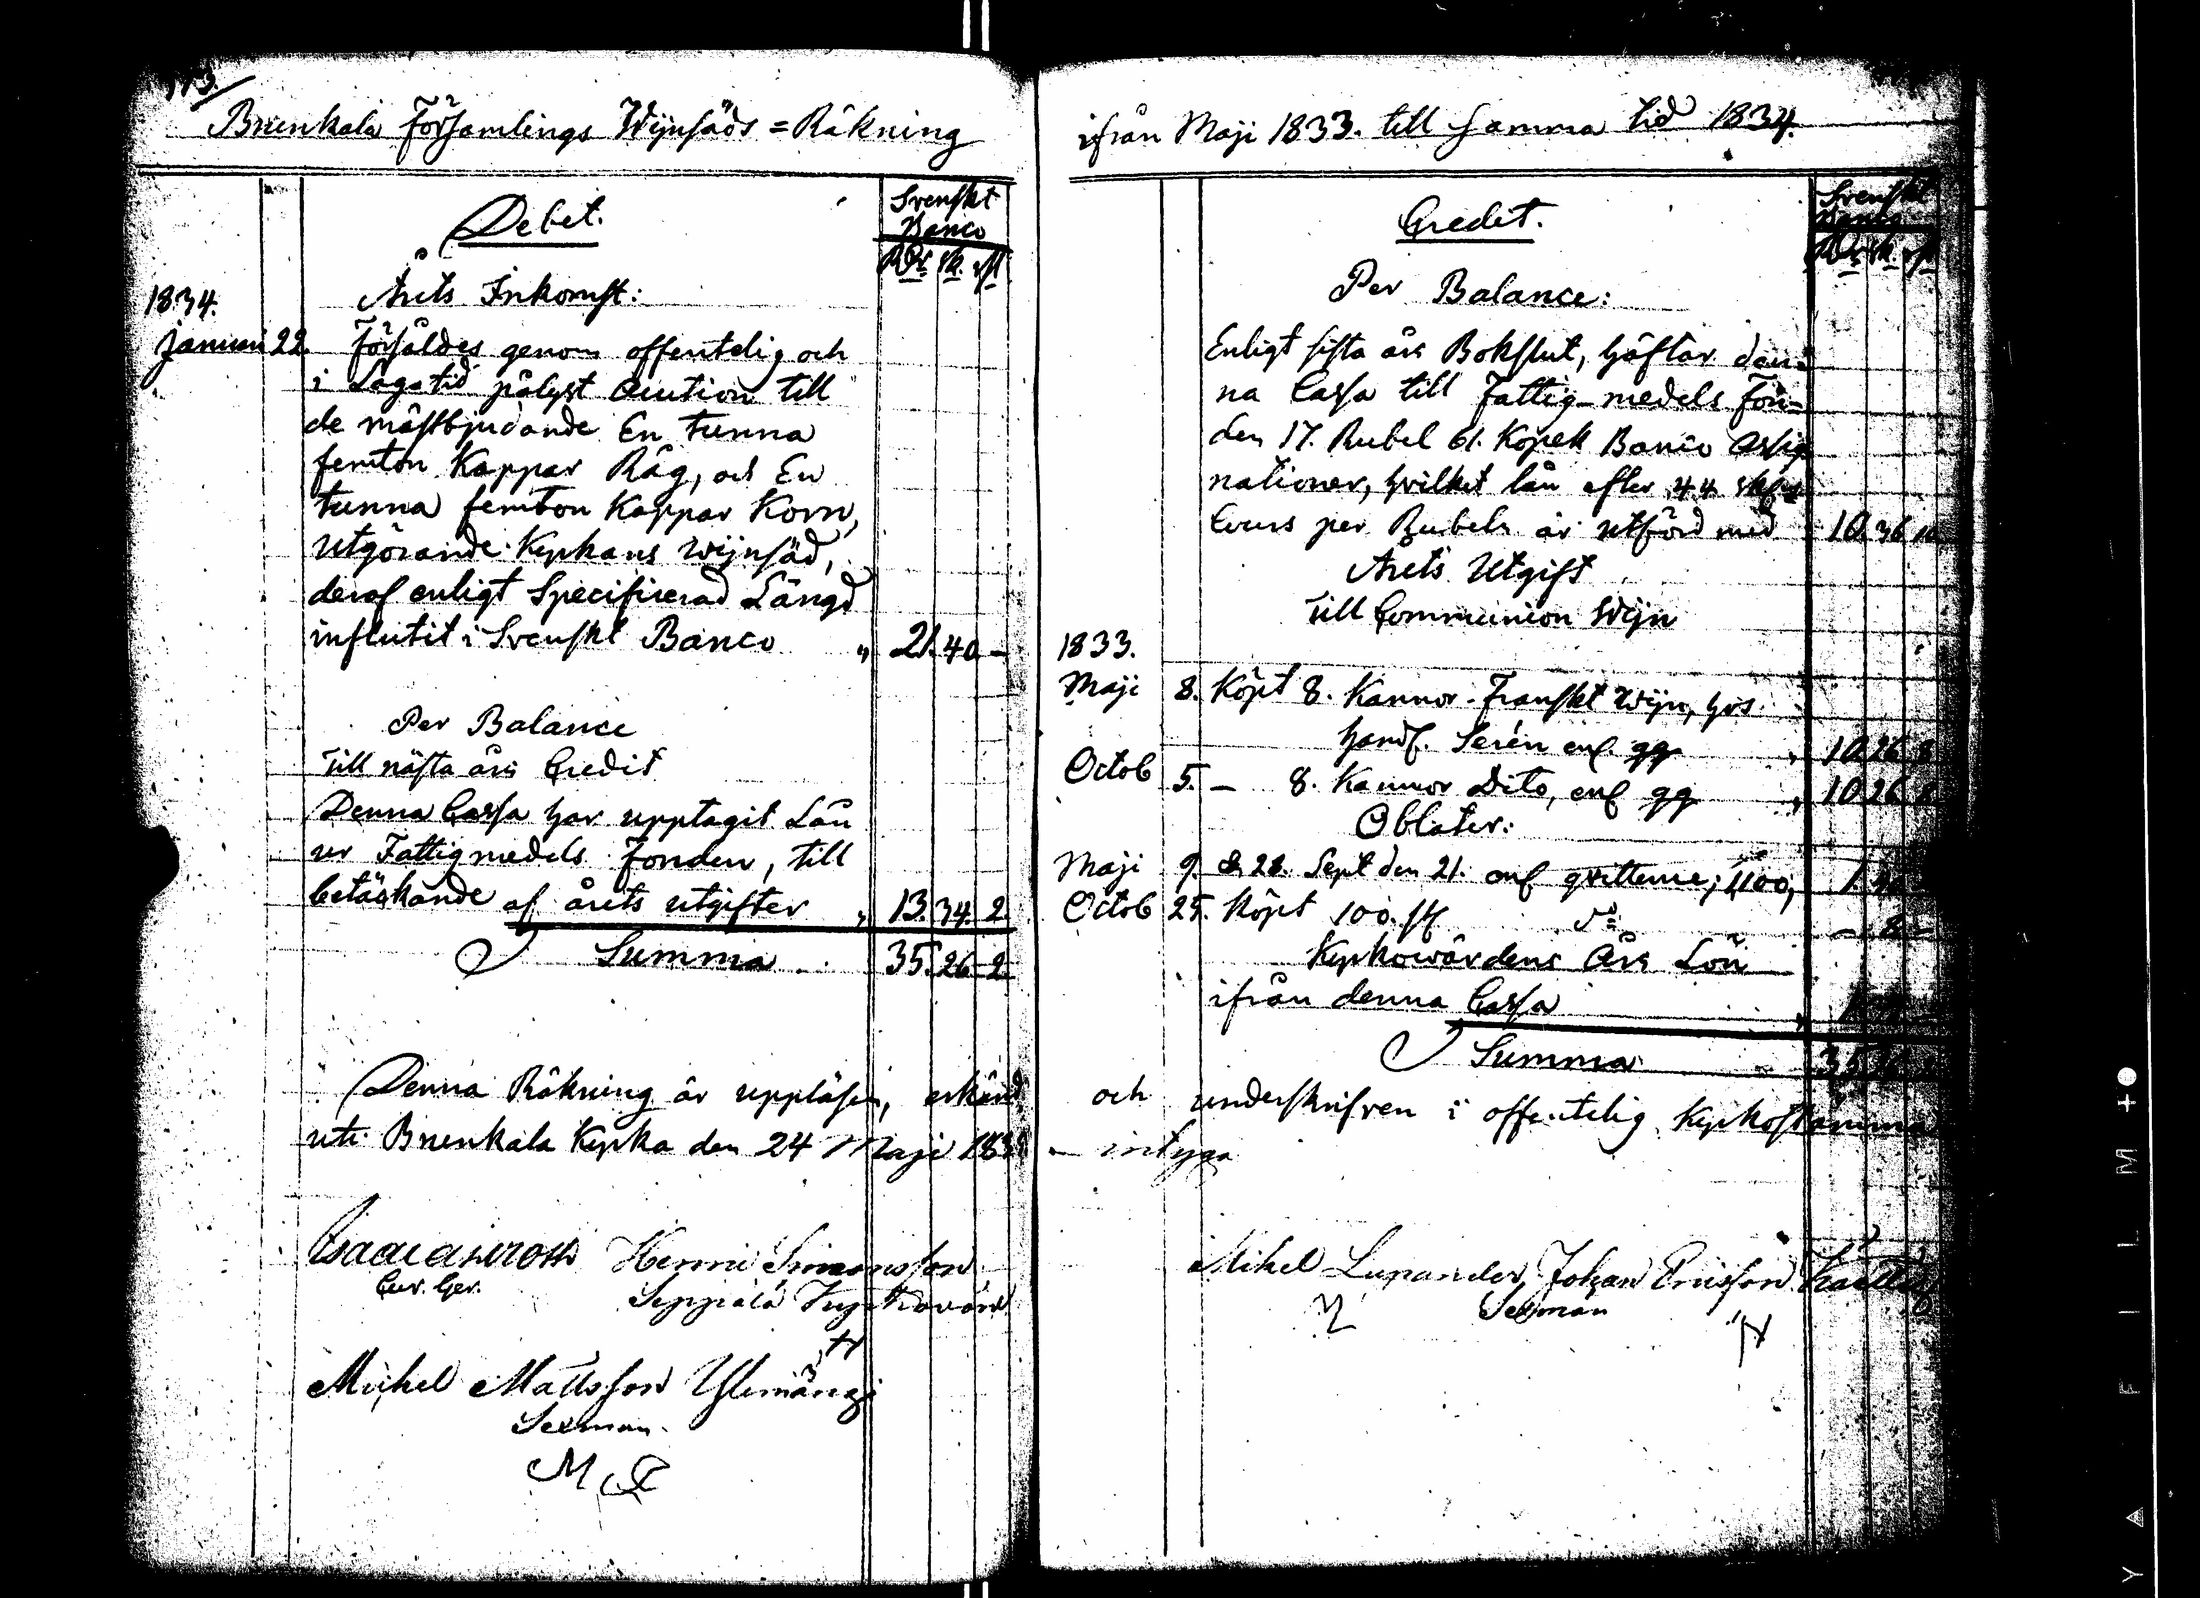 113.
Brunkala Församlings Wijnsäds = Räkning
Debet.
Svenskt
Banco
RDr. sk. rst
Årets Inkomst:
1834.
Januari 22. Försåldes genom offentelig och
i Laga tid pålyst Auction till
de mästbjudande En tunna
femton Kappar Råg, och En
tunna femton Kappar Korn,
utgörande Kyrkans Wijnsäd,
deraf enligt Specificerad Längd
influtit i Svenskt Banco " 21. 40 –
Per Balance
Till nästa års Credit
Denna Cassa har upptagit Lån
ur Fattigmedels Fonden, till
betäckande af årets utgifter " 13. 34. 2.
Summa 35. 26 2
Denna Räkning är uppläsen, erkänd
uti Brunkala Kyrka den 24 Maji
Cur. Ger.
Henric Simonsson
Seppälä
Michel Mattsson
Sexman.
M
ifrån Maji 1833. till samma tid 1834.
Credit.
Svenskt
Banco
RDr. sk. rst
Per Balance:
Enligt sista års Bokslut, häftar den-
na Cassa till Fattig-medels Fon-
den 17. Rubel 61. Kopek Banco Assig
nationer, hvilket lån efter 44 sk
Cours per Rubeln är utförd med 10. 36 10
Årets Utgift
Till Communion Wijn
1833.
Maji 8. Köpt 8. Kannor Franskt Wijn, hos
Handl. Serén enl. qq " 10. 26 8
Octob 5. – 8. Kannor Dito, enl qq " 10 26 8
Oblater:
Maji 9. & 28. Sept den 21. enl qvittence; 1100,
Octob 25. Köpt 100. st do – 8 –
Kyrkowärdens Års Lön
ifrån denna Cassa
Summa 35 26
och underskrifven i offentelig Kyrkostämma
– intyga
Mikel Lunander, Johan Ericsson
Sexman